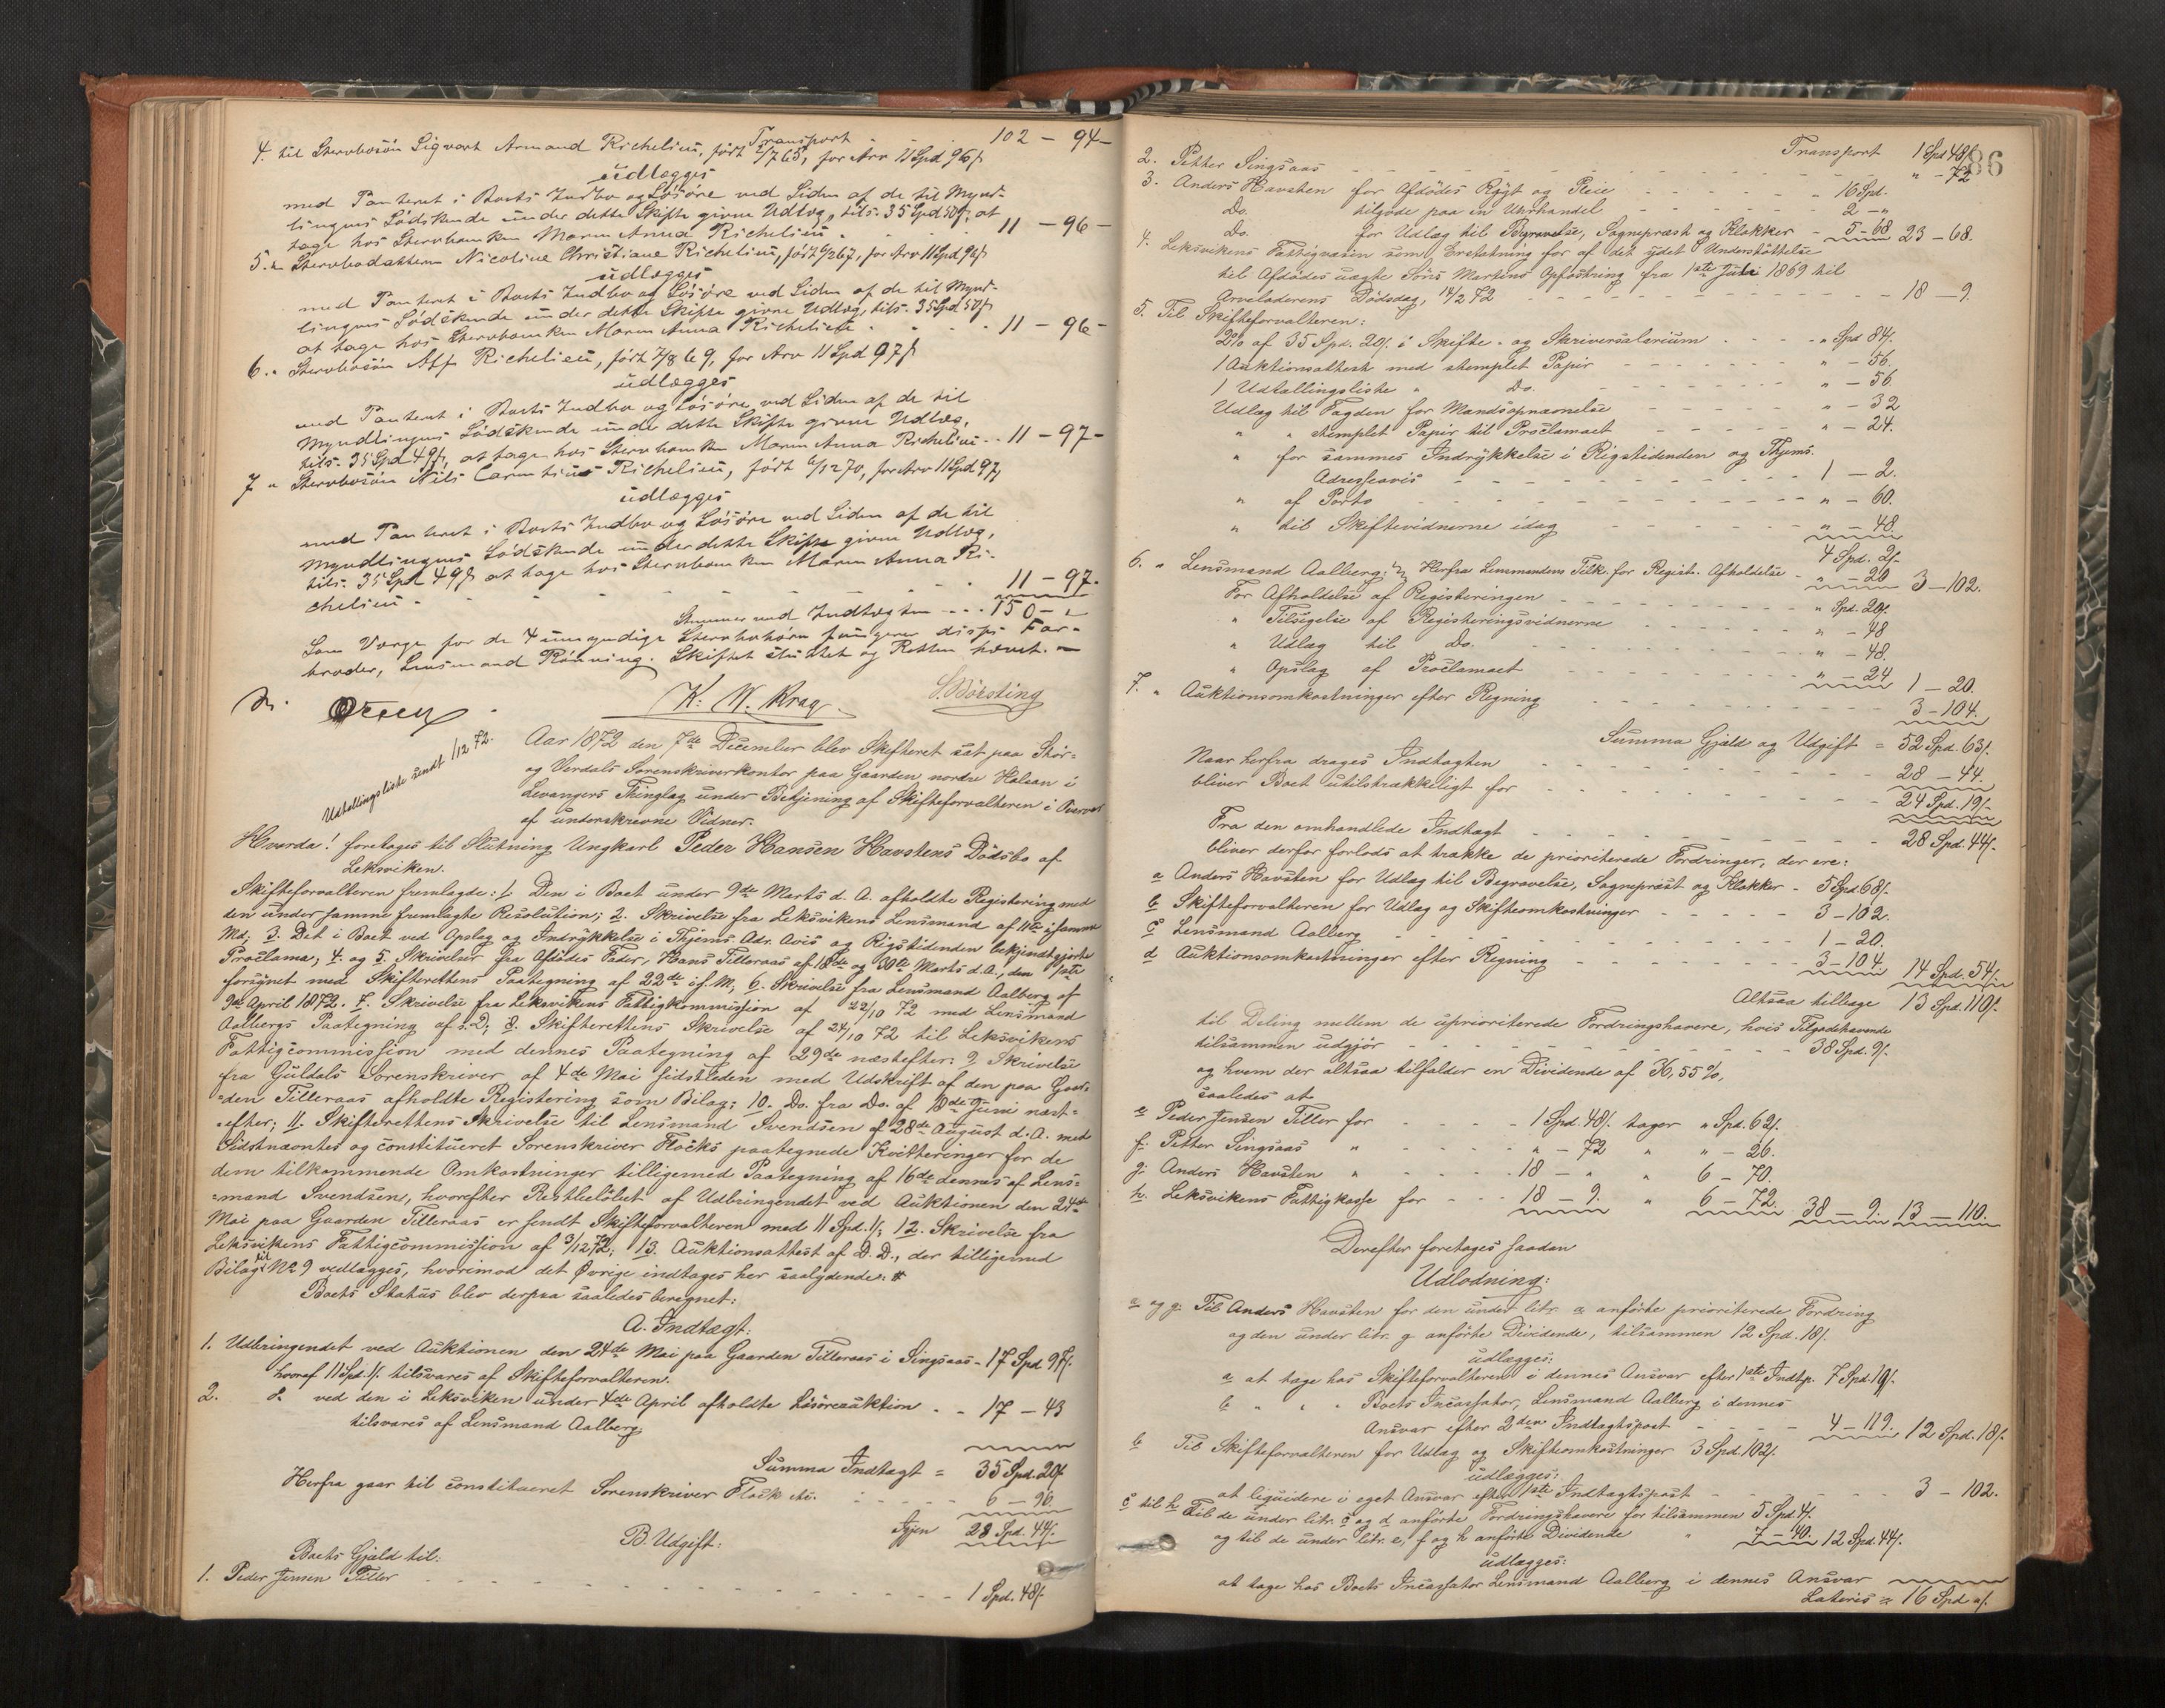 Transport - - 102 - 94 -
4. til Stervbosön Sigvart Armand Richelieu, født 2/7 65, for Arv 11 Spd 96 ß
udlægges
med Panteret i Boets Indbo og Lösöre ved Siden af de til Mynd-
lingens Södskende under dette Skifte givne Udlæg, tils. 35 Spd 50 ß, at
tage hos Stervboenken Maren Anna Richelieu - 11 - 96 -
5. " Stervbodatteren Nicoline Christiane Richelieu, født 6/2 67, for Arv 11 Spd 96 ß
udlægges
med Panteret i Boets Indbo og Lösöre ved Siden af de til Mynd-
lingens Södskende under dette Skifte givne Udlæg, tils. 35 Spd 50 ß
at tage hos Stervboenken Maren Anna Richelieu - - - 11 - 96 -
6. " Stervbosön Alf Richelieu, født 7/8 69, for Arv 11 Spd 97 ß
udlægges
med Panteret i Boets Indbo og Lösöre ved Siden af de til
Myndlingens Södskende under dette Skifte givne Udlæg,
tils. 35 Spd 49 ß, at tage hos Stervboenken Maren Anna Richelieu - - 11 - 97 -
7 " Stervbosön Nils Richelieu, født 6/12 70, for Arv 11 Spd 97 ß
udlægges
med Panteret i Boets Indbo og Lösöre ved Siden af de til
Myndlingens Södskende under dette Skifte givne Udlæg,
tils. 35 Spd 49 ß at tage hos Stervboenken Maren Anna Ri-
chelieu - - - - - 11 - 97.
Summer med Indtægten - - - 150 - "
Som Værge for de 4 umyndige Stervbobörn fungerer disses Far-
broder, Lensmand Rönning. Skiftet sluttet og Retten hævet. -
K. N. Krag. S. Börsting
Udtallingsliste sendt /12 72.
Aar 1872 den 7de December blev Skifteret sat paa Stör-
og Verdals Sorenskriverkontor paa Gaarden nordre Halsan i
Levangers Thinglag under Betjening af Skifteforvalteren i Overvær
af underskrevne Vidner.
Hvorda! foretages til Slutning Ungkarl Peder Hansen Havstens Dödsbo af
Leksviken.
Skifteforvalteren fremlagde: 1. Den i Boet under 9de Marts d. A. afholdte Registering med
den under samme fremlagte Resolution; 2. Skrivelse fra Leksvikens Lensmand af 11te i samme
Md; 3. Det i Boet ved Opslag og Indrykkelse i Thjems. Adr. Avis og Rigstidenden bekjendtgjorte
Proclama; 4. og 5. Skrivelser fra Afdödes Fader, Hans Tilleraas af 18de og 30te Marts d.A., den 1ste
forsynet med Skifterettens Paategning af 22de s.f. M; 6. Skrivelse fra Lensmand Aalberg af
9de April 1872. 7. Skrivelse fra Leksvikens Fattigkommission af 22/10 72 med Lensmand
Aalbergs Paategning af s.D; 8. Skifterettens Skrivelse af 24/10 72 til Leksvikens
Fattigcommission med dennes Paategning af 29de næstefter; 9 Skrivelse
fra Guldals Sorenskriver af 4de Mai sidstleden med Udskrift af den paa Gaar-
-den Tilleraas afholdte Registering som Bilag; 10. Do. fra Do. af 18de Juni næst-
-efter; 11. Skifterettens Skrivelse til Lensmand Svendsen af 28de August d.A. med
Sidstnævntes og constitueret Sorenskriver Flocks paategnede Kvitteringer for de
dem tilkommende Omkostninger tilligemed Paategning af 16de dennes af Lens-
-mand Svendsen, hvorefter Restbelöbet af Udbringendet ved Auktionen den 24de
Mai paa Gaarden Tilleraas er sendt Skifteforvalteren med 11 Spd. 1 ß; 12. Skrivelse fra
Leksvikens Fattigcommission af 3/12 72; 13. Auktionsattest af D. D., der tilligemed
Bilag til No 9 vedlægges, hvorimod det Øvrige indtages her saalydende:
Boets Status blev derpaa saaledes beregnet:
A. Indtægt:
1. Udbringendet ved Auktionen den 24de Mai paa Gaarden Tilleraas i Singsaas - 17 Spd 97 ß.
hvoraf 11 Spd. 1 ß. tilsvares af Skifteforvalteren.
2. Do ved den i Leksviken under 4de April afholdte Lösöreauktion - - 17 - 43
tilsvares af Lensmand Aalberg.
Summa Indtægt = 35 Spd. 20 ß
Herfra gaar til constitueret Sorenskriver Flock etc. - - - - - 6 - 96.
Igjen 28 Spd. 44 ß.
B. Udgift:
Boets Gjæld til:
1. Peder Jensen Tiller - - - - - - 1 Spd. 48 ß.
86
Transport 1 Spd 48 ß.
2. Petter Singsaas - - - - - - " - 72
3. Anders Havsten for Afdödes Rögt og Pleie - - - - 16 Spd.
Do. tilgode paa en Uhrhandel - - - - 2 - "
Do. for Udlæg til Begravelse, Sognepræst og Klokker - 5 - 68 23 - 68.
4. Leksvikens Fattigvæsen som Erstatning for af det ydet Understöttelse
til Afdödes uægte Söns Martins Opfostring fra 1ste Juli 1869 til
Arveladerens Dödsdag, 14/2 72 - - - - - - 18 - 9.
5. Til Skifteforvalteren:
2% af 35 Spd. 20 ß. i Skifte- og Skriversalarium - - - " Spd 84 ß.
1 Auktionsattest med stemplet Papir - - - - " - 56.
1 Udtallingsliste " Do. - - - - " - 56.
Udlæg til Fogden for Mandsopnævnelse - - - - " - 32
" " stemplet Papir til Proclamaet - - - - " - 24.
" for sammes Indrykkelse i Rigstidenden og Thjems.
Adresseavis - - - - - 1 - 2.
" af Porto - - - - - " - 60.
" til Skiftevidnerne idag - - - - " - 48
4 Spd. 2 ß.
Herfra Lensmandens Tilk. for Regist. Afholdelse - " - 20 3 - 102.
6. " Lensmand Aalberg:
For Afholdelse af Registeringen - - - - " Spd. 20 ß.
" Tilsigelse af Registeringsvidnerne - - - - " - 48
" Udlæg til Do. - - - - " - 48.
" Opslag af Proclamaet - - - - " - 24 1 - 20.
7. " Auktionsomkostninger efter Regning - - - - 3 - 104.
Summa Gjæld og Udgift = 52 Spd. 63 ß.
Naar herfra drages Indtægten - - - - 28 - 44.
bliver Boet utilstrækkeligt for - - - - 24 Spd. 19 ß.
Fra den omhandlede Indtægt - - - - 28 Spd. 44 ß.
bliver derfor forlods at trække de prioriterede Fordringer, der ere:
a Anders Havsten for Udlæg til Begravelse, Sognepræst og Klokker - 5 Spd 68 ß.
b Skifteforvalteren for Udlæg og Skifteomkostninger - - - 3 - 102.
c Lensmand Aalberg - - - - - 1 - 20.
d Auktionsomkostninger efter Regning - - - - 3 - 104. 14 Spd. 54 ß.
Altsaa tilbage 13 Spd. 110 ß.
til Deling mellem de uprioriterede Fordringshavere, hvis Tilgodehavende
tilsammen udgjör - - - - - - 38 Spd. 9 ß.
og hvem der altsaa tilfalder en Dividende af 36,55 %,
saaledes at
e Peder Jensen Tiller for - - - 1 Spd. 48 ß. tager " Spd. 62 ß.
f. Petter Singsaas " - - - " - 72 " " - 26.
g. Anders Havsten " - - - 18 - " " 6 - 70.
h. Leksvikens Fattigkasse for - - - 18 - 9. " 6 - 72. 38 - 9. 13 - 110.
Derefter foretages saadan
Udlodning:
a og g. Til Anders Havsten for den under litr. a anförte prioriterede Fordring
og den under litr. g anförte Dividende, tilsammen 12 Spd. 18 ß.
udlægges:
a at tage hos Skifteforvalteren i dennes Ansvar efter 1ste Indtp. 7 Spd 19 ß.
b " " " Boets Incassator, Lensmand Aalberg i dennes
Ansvar efter 2den Indtægtspost - - - 4 - 119. 12 Spd. 18 ß.
b Til Skifteforvalteren for Udlæg og Skifteomkostninger 3 Spd. 102 ß.
udlægges:
at liquidere i eget Ansvar efter 1ste Indtægtspost - - - 3 - 102.
c til h Til de under litr. c og d anförte Fordringshavere for tilsammen 5 Spd 4 ß.
og til de under litr. e, f og h anförte Dividende " 7 - 40. 12 Spd. 44 ß.
udlægges:
at tage hos Boets Incassator Lensmand Aalberg i dennes Ansvar
Lateris = 16 Spd " ß.